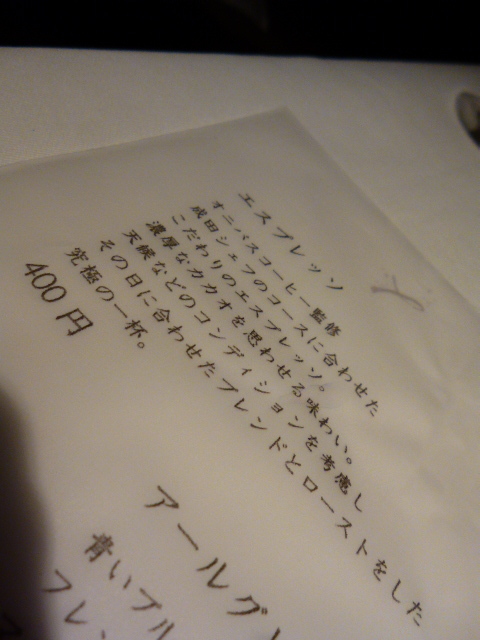 エスプレッソ
オニバスコーヒー監修
成田シェフのコースに合わせた
こだわりのエスプレッソ。
濃厚なカカオを思わせる味わい。
天候などのコンディションを考慮し
その日に合わせたブレンドとローストをした
究極の一杯。
400円
アールグレ
青いブル
フレン